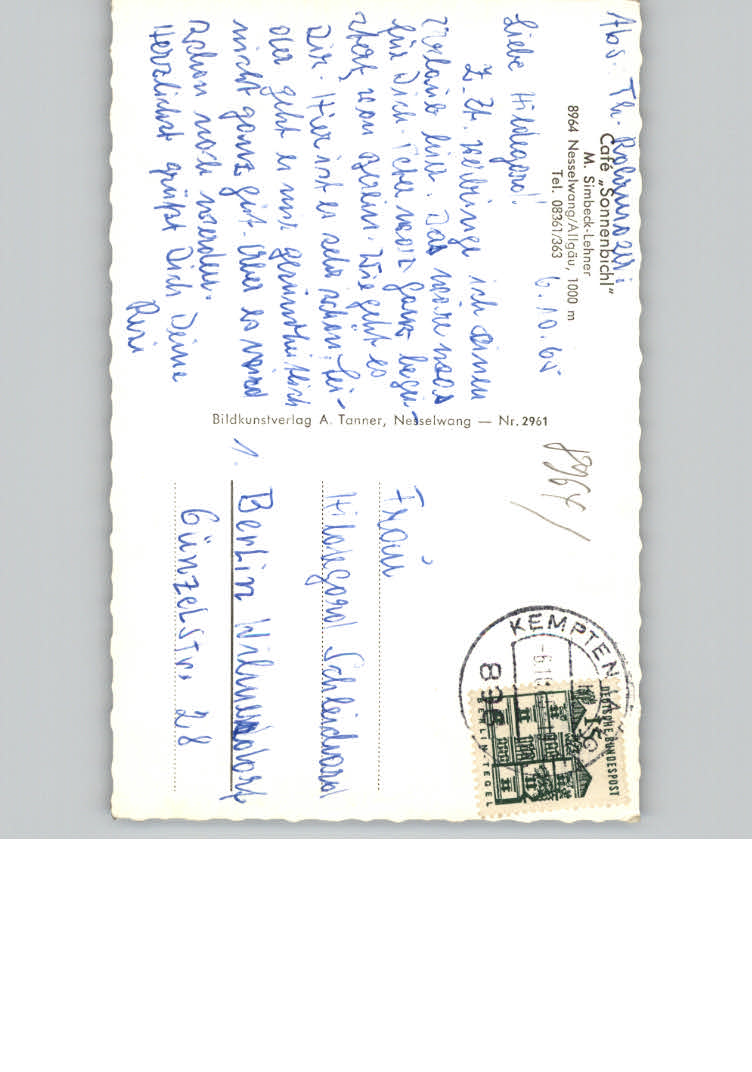 Abs. Th.
Café „Sonnenbichl"
M. Simbeck-Lehner
8964 Nesselwang/Allgäu, 1000 m
Tel. 08361/363
6.10.65
Liebe Hildegard!
Z. Zt. verbringe ich einen
Urlaub hier. Das wäre was
für Dich. Ich war ganz begei-
stert von Berlin. Wie geht es
Dir. Hier ist es sehr schön. Lei-
der geht es mir gesundheitlich
nicht ganz gut. Aber es wird
schon noch werden.
Herzlichst grüßt Dich Deine
Resi
Bildkunstverlag A. Tanner, Nesselwang — Nr. 2961
8964/
Frau
Hildegard
1. Berlin Wilmersdorf
Günzelstr. 28
KEMPTEN
-6.10
898
15
DEUTSCHE BUNDESPOST
BERLIN-TEGEL